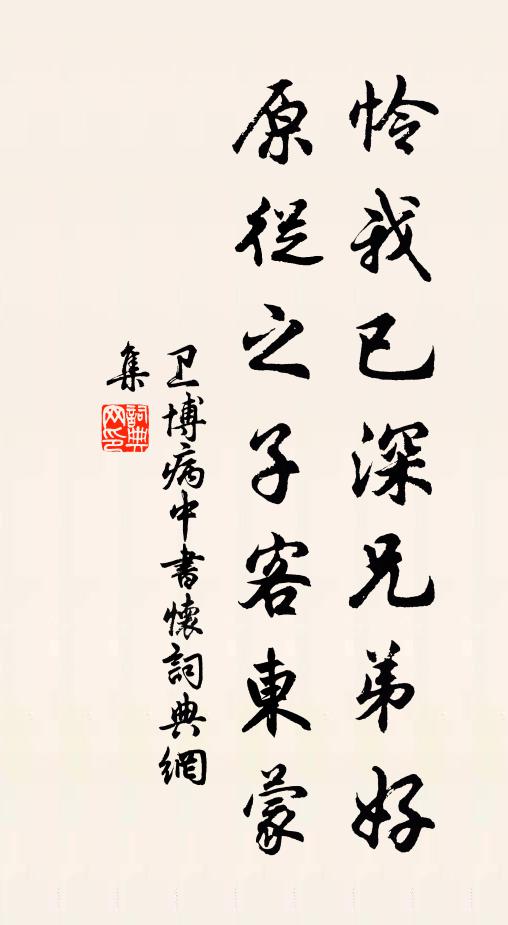 怜我已深兄弟好
原從之子客東蒙
卫博病中書懷詞典網
集
詞典网印